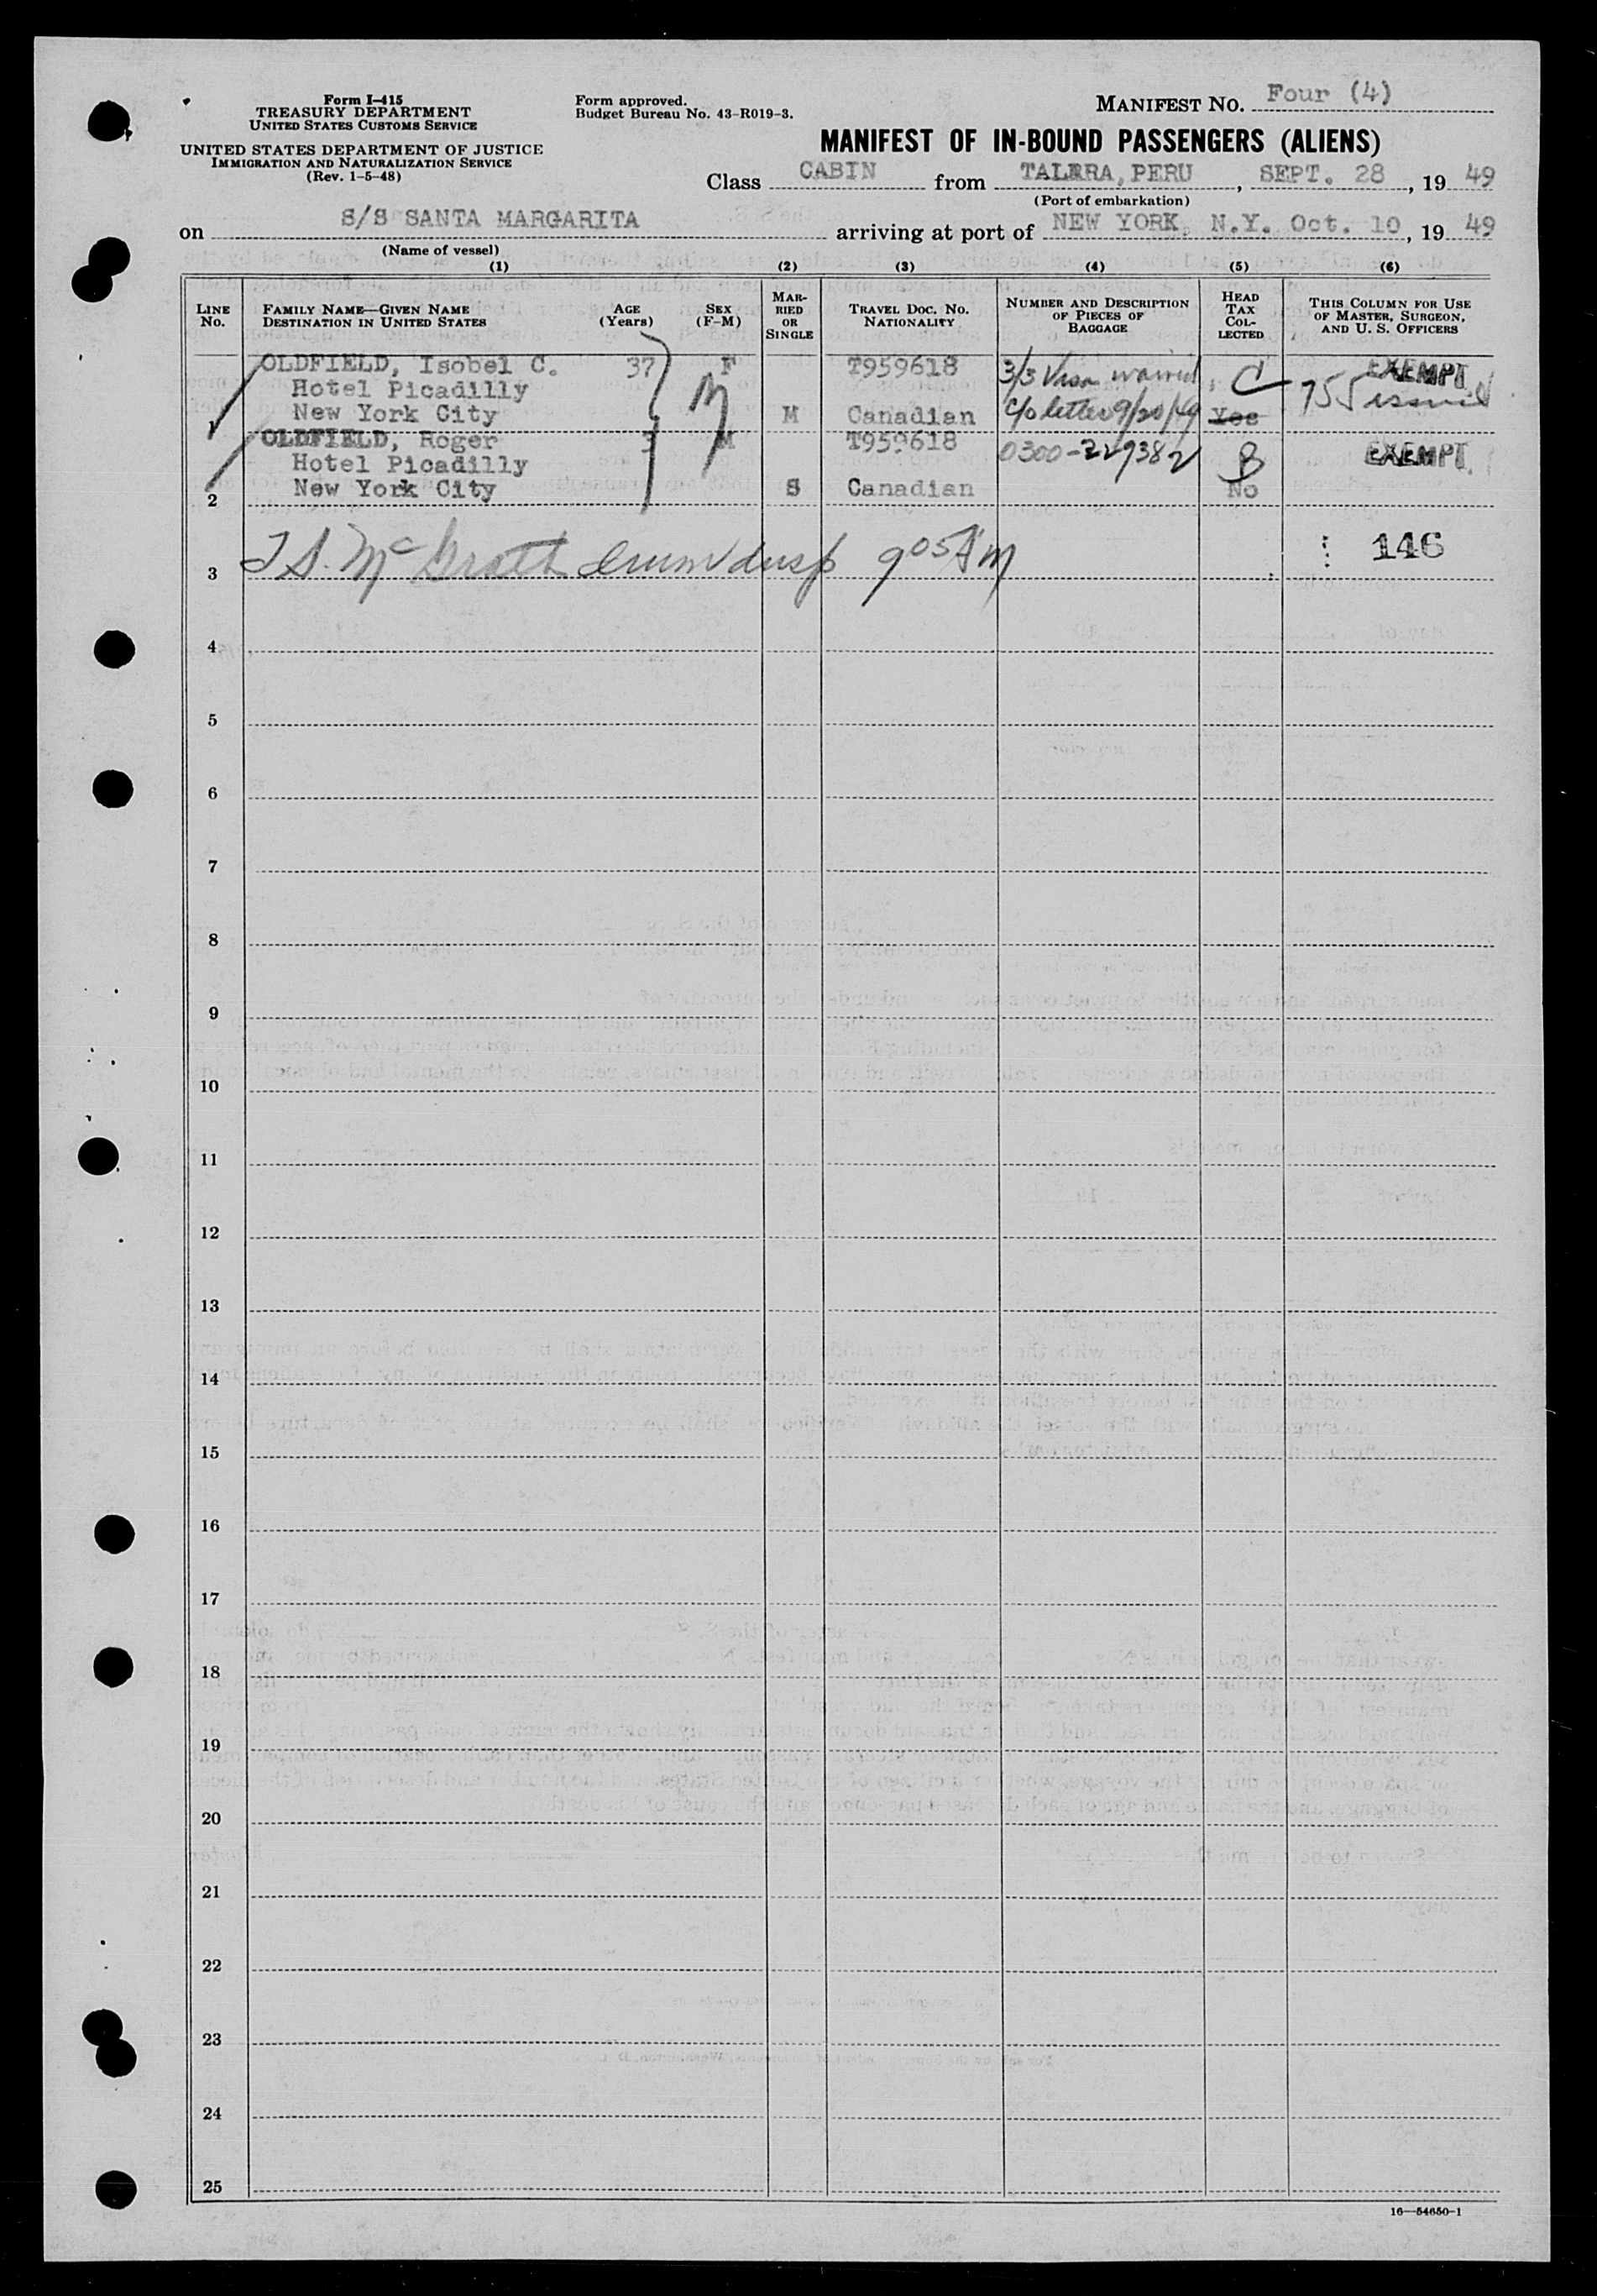 Form I-415
TREASURY DEPARTMENT
UNITED STATES CUSTOMS SERVICE
UNITED STATES DEPARTMENT OF JUSTICE
IMMIGRATION AND NATURALIZATION SERVICE
(Rev. 1-5-48)
Form approved.
Budget Bureau No. 43-R019-3.
MANIFEST NO. Four (4)
MANIFEST OF IN-BOUND PASSENGERS (ALIENS)
Class CABIN from TALARA, PERU, SEPT. 28, 1949
(Port of embarkation)
on S/S SANTA MARGARITA arriving at port of NEW YORK, N.Y. Oct. 10, 1949
(Name of vessel)
(1) (2) (3) (4) (5) (6)
LINE No. FAMILY NAME—GIVEN NAME DESTINATION IN UNITED STATES AGE (Years) SEX (F-M) MARRIED OR SINGLE TRAVEL DOC. NO. NATIONALITY NUMBER AND DESCRIPTION OF PIECES OF BAGGAGE HEAD TAX COLLECTED THIS COLUMN FOR USE OF MASTER, SURGEON, AND U. S. OFFICERS
OLDFIELD, Isobel C. 37 F T959618 3/3 Visa waived C EXEMPT
Hotel Picadilly M 755 issued
1 New York City M Canadian c/o letter 9/20/49 Yes
OLDFIELD, Roger M T959618 0300-229382 B EXEMPT
Hotel Picadilly
2 New York City S Canadian No
3 McGrath 9 05 AM 146
4
5
6
7
8
9
10
11
12
13
14
15
16
17
18
19
20
21
22
23
24
25
16—54650-1